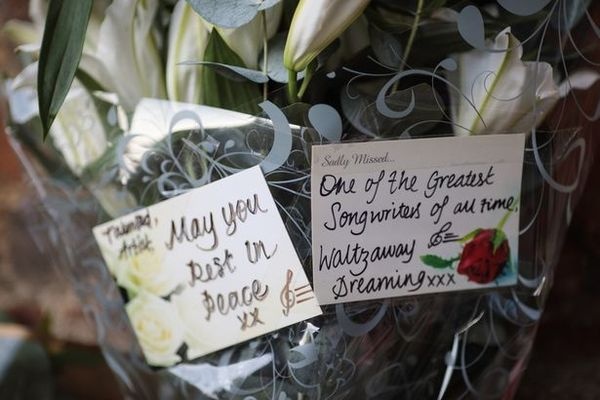 Talented,
Artist
May you
Rest in
Peace
xx
Sadly Missed...
One of the Greatest
Songwriters of all time,
Waltzaway
Dreaming xxx